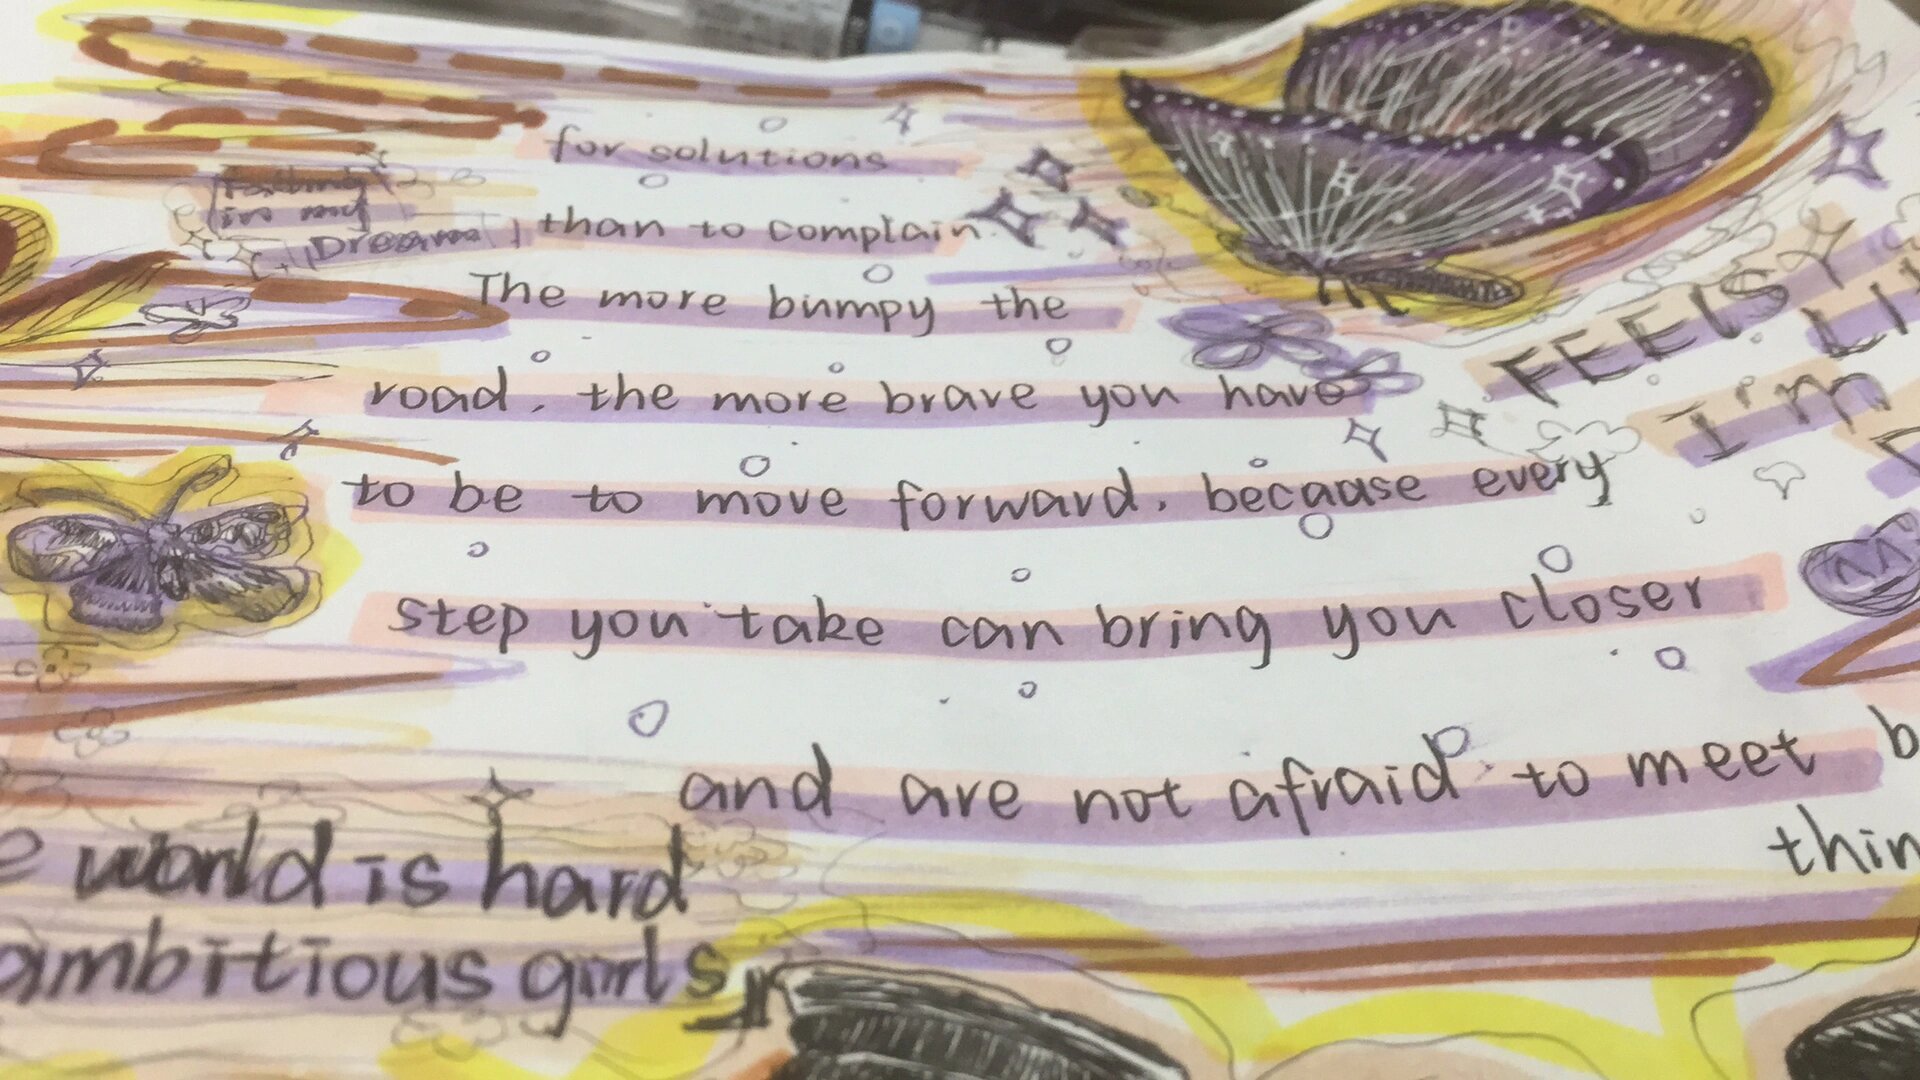 for solutions
than to complain
in my
Dream
The more bumpy the
road, the more brave you have
to be to move forward, because every
step you take can bring you closer
and are not afraid to meet
world is hard
ambitious girls
FEELS
I'm
thin